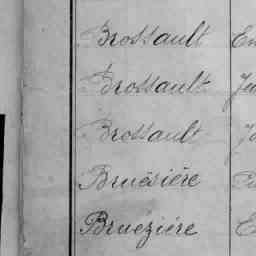 Brossault
Brossault
Brossault
Bruésière
Bruézière